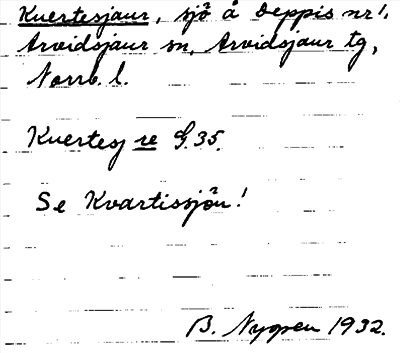 Kuertesjaur, sjö å Deppis nr 1,
Arvidsjaur sn, Arvidsjaur tg,
Norrb. l.
Kuertesj re G. 35.
Se Kvartissjön!
B. Nygren 1932.